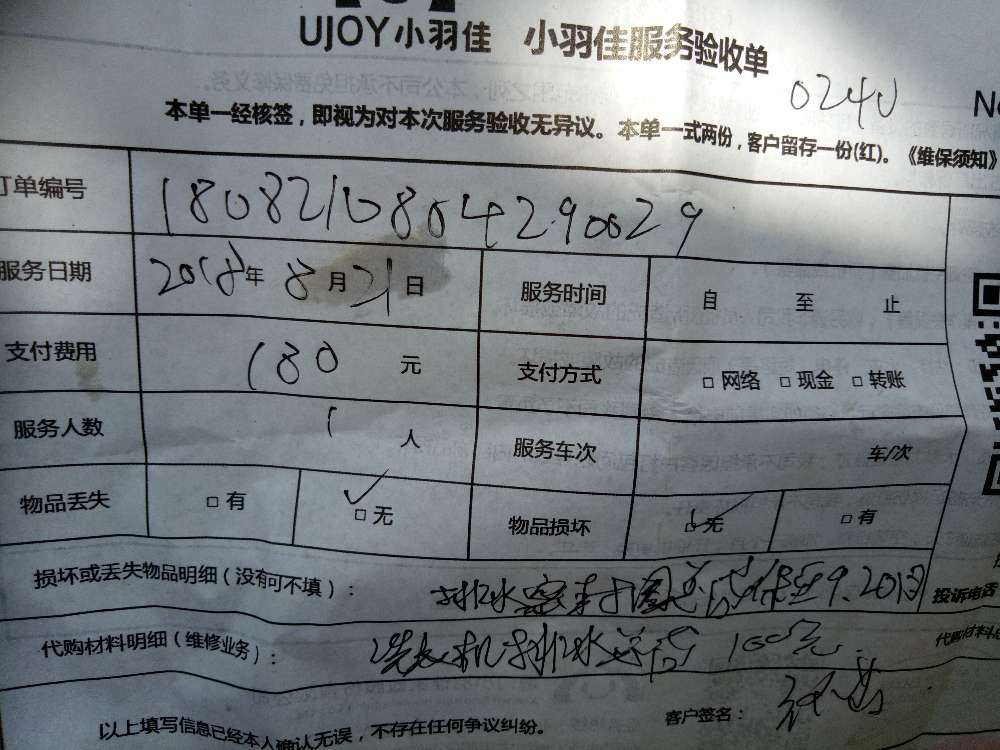 UJOY小羽佳 小羽佳服务验收单
0240
本单一经核签，即视为对本次服务验收无异议。本单一式两份，客户留存一份(红)。《维保须知》
订单编号 1808210804290029
服务日期 2018年8月21日 服务时间 自 至 止
支付费用 180 元 支付方式 □网络 □现金 □转账
服务人数 1 人 服务车次 车/次
物品丢失 □有 ✓□无 物品损坏 ☑无 □有
损坏或丢失物品明细（没有可不填）： 排水 保至9.20日 投诉电话
代购材料明细（维修业务）： 洗衣机排水 100元. 代购材料
以上填写信息已经本人确认无误，不存在任何争议纠纷。 客户签名：